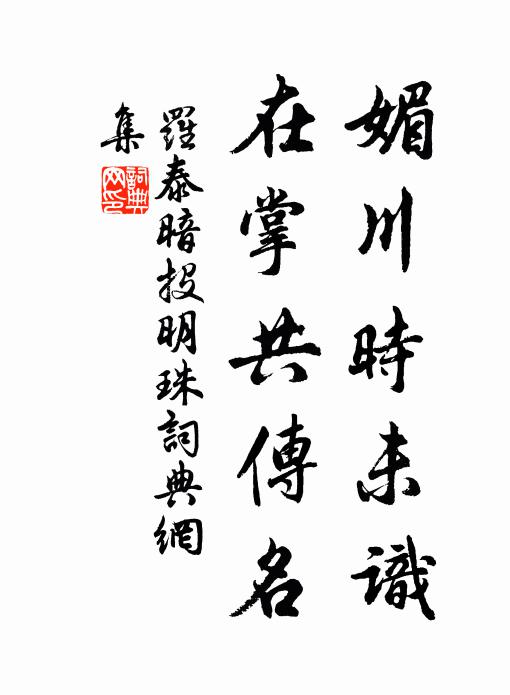 媚川時未識
在掌共傳名
羅泰暗投明珠詞典網
集
詞典
网印